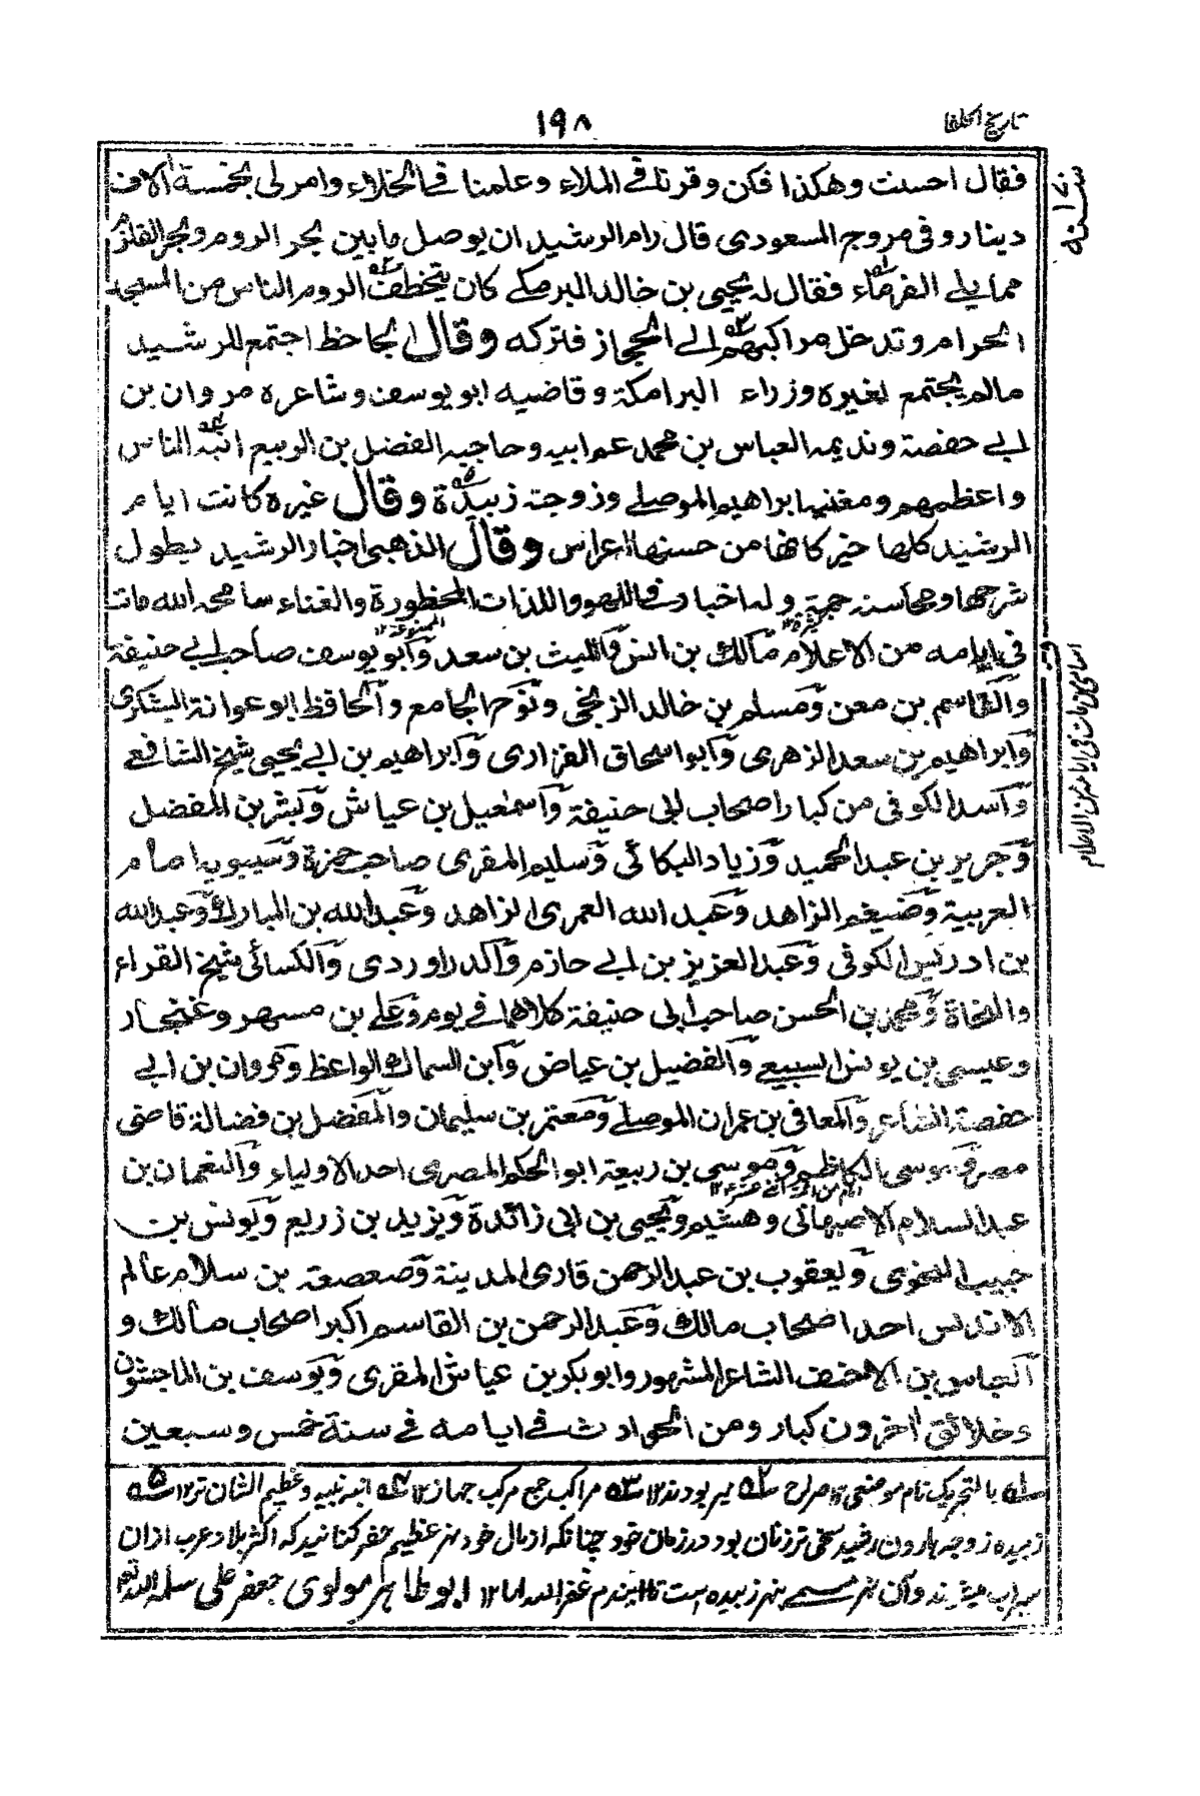 تاريخ الخلفا
١٩٨
سنه ١٧٠
فقال احسنت وهكذا فكن وقرنا فى الملاء وعلمنا فى الخلاء وامر لى بخمسة آلاف
دينار وفى مروج المسعودى قال رام الرشيد ان يوصل ما بين بحر الروم وبحر القلزم
مما يلى الفرماء فقال له يحيى بن خالد البرمكى كان يتخطف الروم الناس من المسجد
الحرام وتدخل مراكبهم الى الحجاز فتركه وقال الجاحظ اجتمع للرشيد
مالم يجتمع لغيره وزراء البرامكة وقاضيه ابو يوسف وشاعره مروان بن
ابى حفصة ونديمه العباس بن محمد عم ابيه وحاجبه الفضل بن الربيع انبه الناس
واعظمهم ومغنيه ابراهيم الموصلى وزوجته زبيدة وقال غيره كانت ايام
الرشيد كلها خير كانها من حسنها اعراس وقال الذهبى اخبار الرشيد يطول
شرحها ومحاسنه جمة وله اخبار فى اللهو واللذات المحظورة والغناء سامحه الله مات
كثيرة ١٢ الممنوعة ١٢
فى ايامه من الاعلام مالك بن انس والليث بن سعد وابو يوسف صاحب ابى حنيفة
والقاسم بن معن ومسلم بن خالد الزنجى ونوح الجامع والحافظ ابو عوانة اليشكرى
وابراهيم بن سعد الزهرى وابو اسحاق الفزارى وابراهيم بن ابى يحيى شيخ الشافعى
واسد الكوفى من كبار اصحاب ابى حنيفة واسمعيل بن عياش وبشر بن المفضل
وجرير بن عبد الحميد وزياد البكائى وسليم المقرى صاحب حمزة وسيبويه امام
العربية وضيغم الزاهد وعبد الله العمرى الزاهد وعبد الله بن المبارك وعبد الله
بن ادريس الكوفى وعبد العزيز بن ابى حازم والدراوردى والكسائى شيخ القراء
والنحاة ومحمد بن الحسن صاحب ابى حنيفة كلاهما فى يوم وعلى بن مسهر وغنجار
وعيسى بن يونس السبيعى والفضيل بن عياض وابن السماك الواعظ ومروان بن ابى
حفصة الشاعر والمعافى بن عمران الموصلى ومعتمر بن سليمان والمفضل بن فضالة قاضى
مصر وموسى الكاظم وموسى بن ربيعة ابو الحكم المصرى احد الاولياء والنعمان بن
عبد السلام الاصبهانى وهشيم ويحيى بن ابى زائدة ويزيد بن زريع ويونس بن
حبيب النحوى ويعقوب بن عبد الرحمن قارى المدينة وصعصعة بن سلام عالم
الاندلس احد اصحاب مالك وعبد الرحمن بن القاسم اكبر اصحاب مالك و
العباس بن الاحنف الشاعر المشهور وابو بكر بن عياش المقرى ويوسف بن الماجشون
وخلائق آخرون كبار ومن الحوادث فى ايامه فى سنة خمس وسبعين
اسامى من مات فى ايامه من الاعلام
١ بالتحريك نام موضعى ١٢ صراح ٢ مير بودند ١٢ ٣ مراكب جمع مركب جهاز ١٢ ٤ انبه نبيه وعظيم الشان تر ١٢ ٥
زبيده زوجه هارون رشيد سخى تر زنان بود در زمان خود چنانكه از مال خود نهر عظيم حفر كنانيد كه اكثر بلاد عرب ازان
سيراب ميشوند وآن نهر مسمى بنهر زبيده است تا ايندم غفر الله لها ١٢ ابو طاهر مولوى جعفر على سلمه الله تع